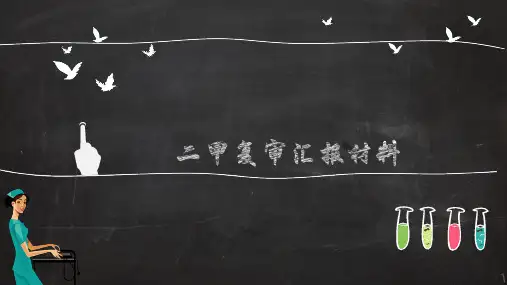 二甲复审汇报材料